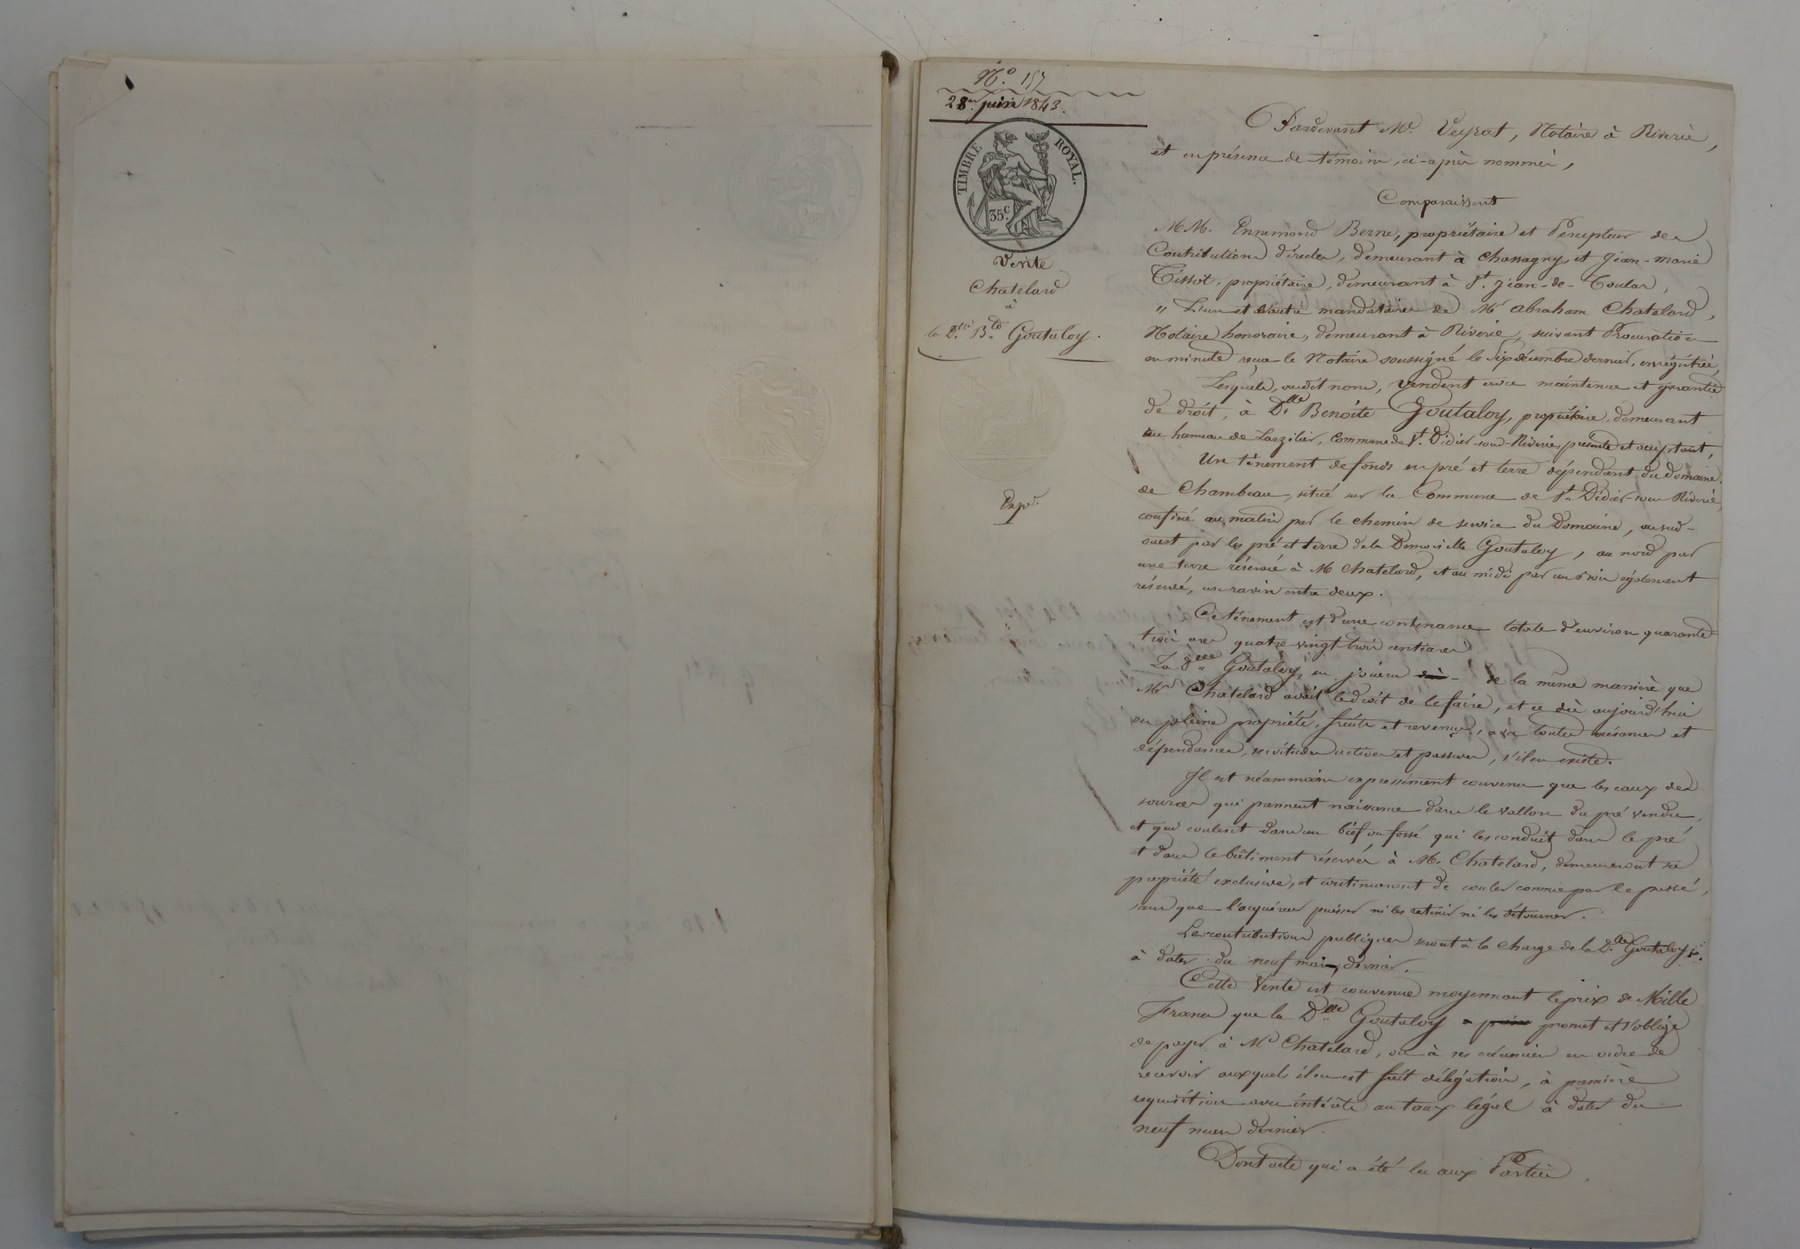 N.o 157
28 juin 1843.
TIMBRE ROYAL.
35c
Vente
Chatelard
à
la D.lle B.te Goutaloy.
Exp.
Pardevant Me. Veyrat, Notaire à Riverie,
et en présence de témoins, ci-après nommés,
Comparaissent
MM. Ennemond Berne, propriétaire et Percepteur des
Contributions directes, demeurant à Chassagny et Jean-marie
Tissot, propriétaire, demeurant à St. Jean-de-Toulas,
" L'un et l'autre mandataires de Mr Abraham Chatelard,
Notaire honoraire, demeurant à Riverie, suivant Procuration
en minute reçue le Notaire soussigné le six décembre dernier, enregistrée,
Lesquels, audit nom, vendent avec maintenue et garantie
de droit, à D.lle Benoîte Goutaloy, propriétaire, demeurant
au hameau de Larzilier, Commune de St. Didier-sous-Riverie, présente et acceptant,
Un tènement de fonds en pré et terre dépendant du domaine
de Chambeau, situé sur la Commune de St. Didier-sous-Riverie,
confiné au matin par le chemin de service du Domaine, au sud-
ouest par les pré et terre de la Demoiselle Goutaloy, au nord par
une terre réservée à M Chatelard, et au midi par un également
réservé, un ravin entre deux.
Ce tènement est d'une contenance totale d'environ quarante
trois ares quatre-vingt-trois centiares
La D.lle Goutaloy, en jouira de la même manière que
Mr Chatelard avait le droit de le faire, et ce dès aujourd'hui
en pleine propriété, fruits et revenus, avec toutes aisances et
dépendances, servitudes actives et passives, s'il en existe.
Il est néammoins expressément convenu que les eaux des
sources qui prennent naissance dans le vallon du pré vendu,
et qui coulent dans un bief ou fossé qui les conduit dans le pré
et dans le bâtiment réservés à Mr Chatelard, demeureront sa
propriété exclusive, et continueront de couler comme par le passé,
sans que l'acquéreur puisse ni les retenir ni les détourner.
Les contributions publiques seront à la charge de la D.lle Goutaloy
à dater du neuf mai dernier.
Cette Vente est convenue moyennant le prix de Mille
Francs que la D.lle Goutaloy promet et s'oblige
de payer à Mr Chatelard, ou à ses créanciers en ordre de
recevoir auxquels il en est fait délégation, à première
réquisition avec intérêts au taux légal à dater du
neuf mars dernier.
Dont acte qui a été lu aux Parties,